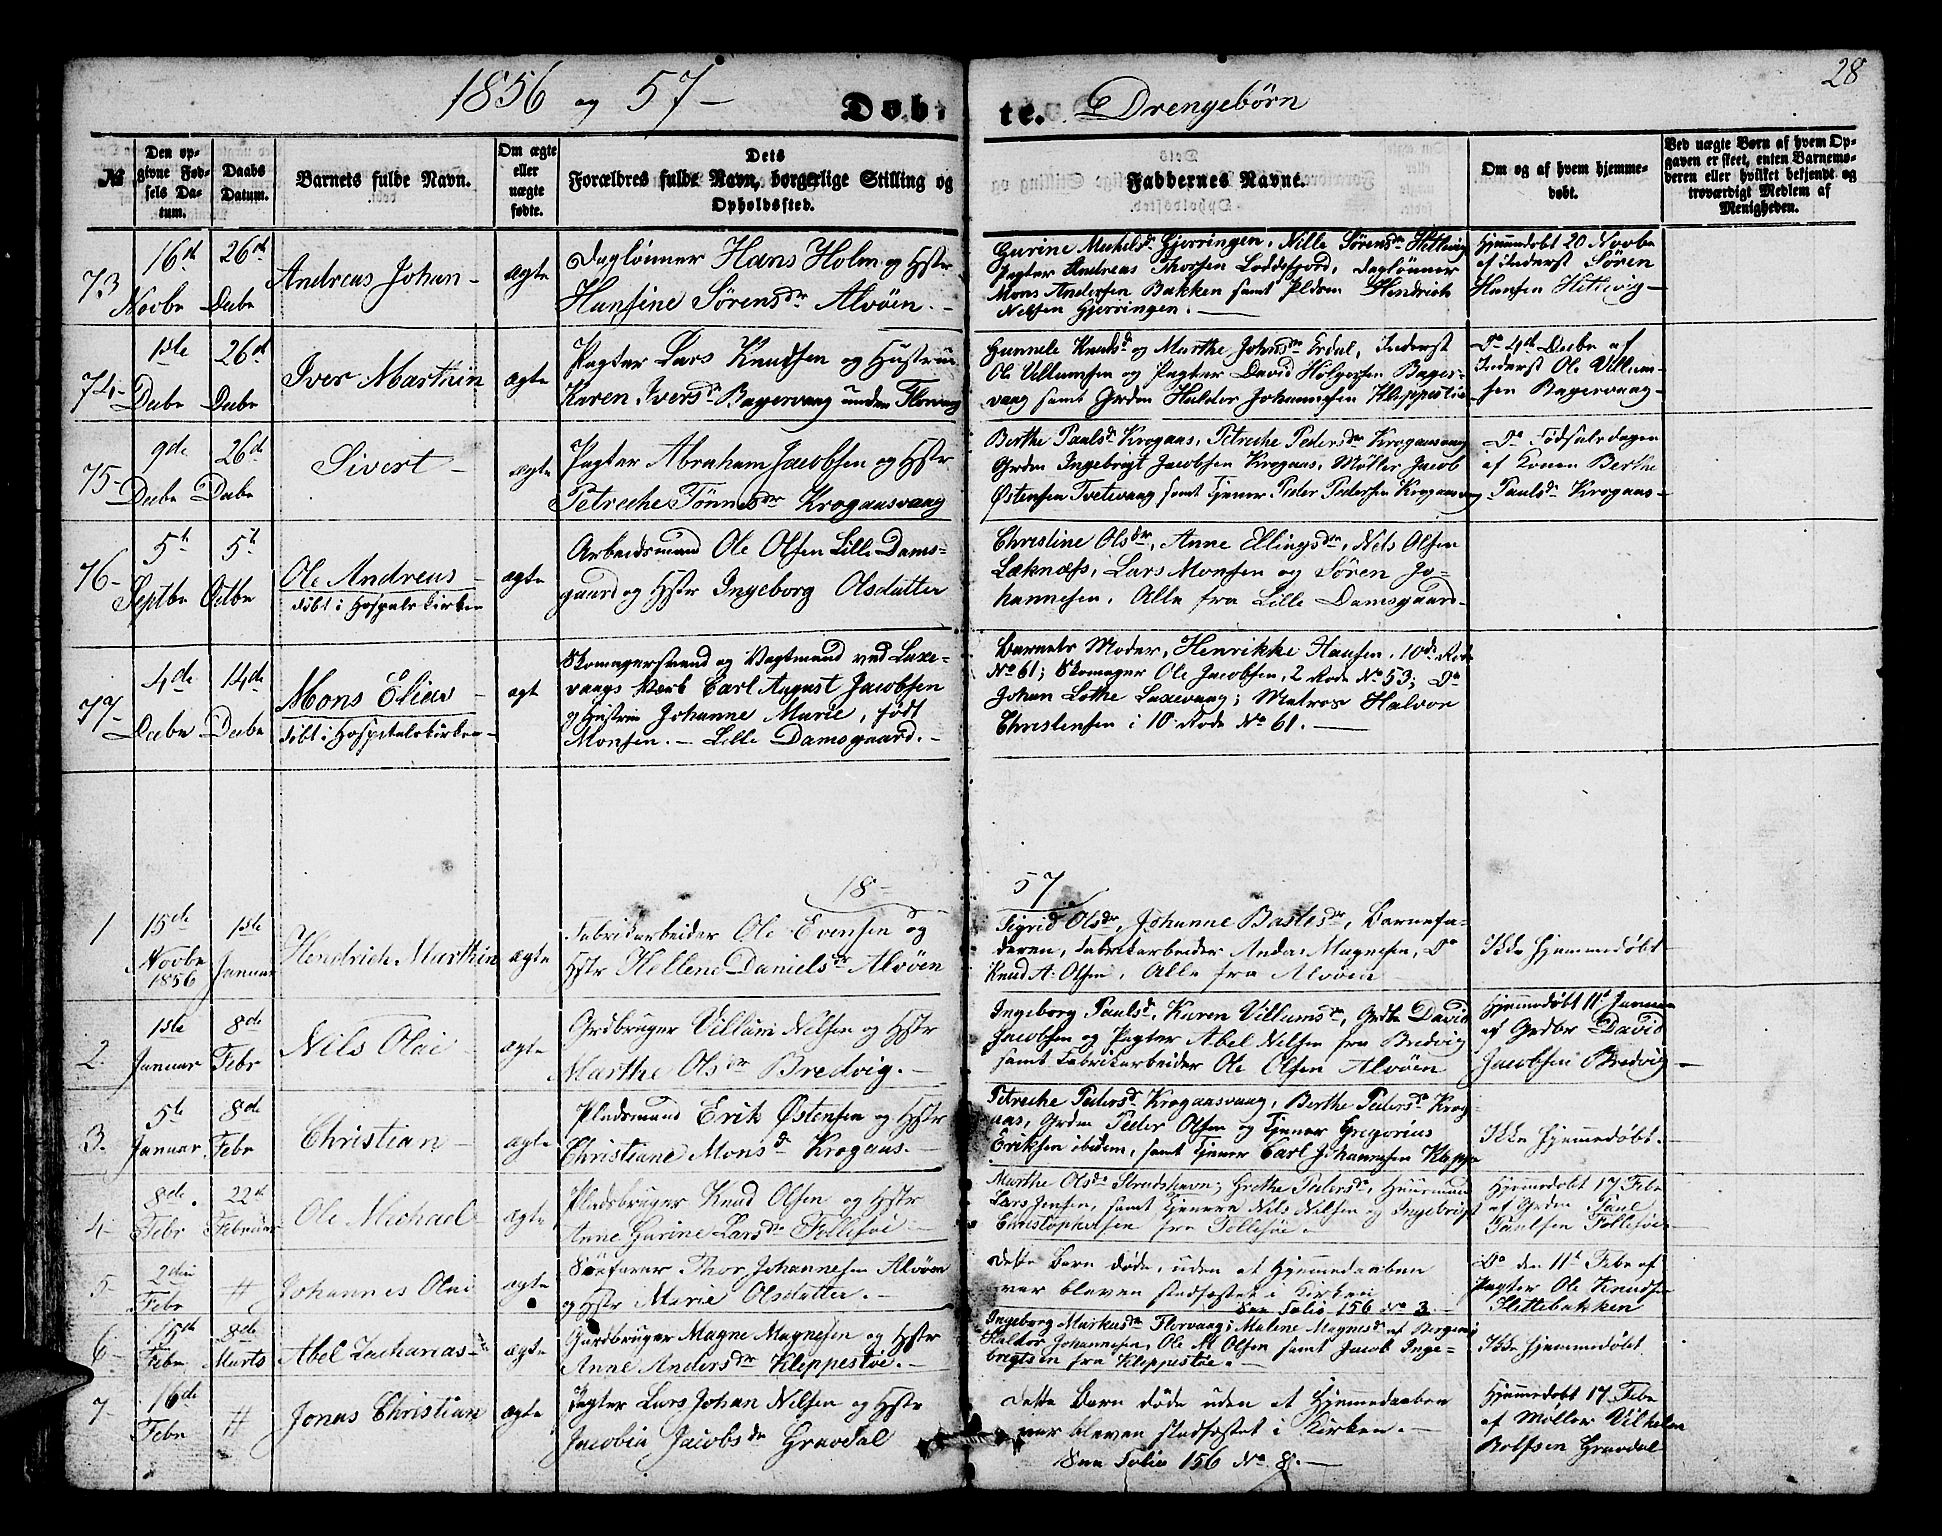 28
1856 og 57 – Døbte. Drengebørn
№
Den opgivne Fødsels Datum.
Daabs Datum.
Barnets fulde Navn.
Om ægte eller uægte fødte.
Dets Forældres fulde Navn, borgerlige Stilling og Opholdssted.
Faddernes Navne.
Om og af hvem hjemmedøbt.
Ved uægte Børn af hvem Opgaven er skeet, enten Barnemoderen eller hvilket bekjendt og troværdigt Medlem af Menigheden.
73
16de Novbr
26de Decbr
Andreas Johan –
ægte
Daglønner Hans Holm og Hstr
Hansine Sørensdr Alvøen. –
Gurine Mikelsd. Gjerringen, Nille Sørensdr Hetlevig
Pagter Andreas Thorsen Loddefjord, Daglønner
Mons Andersen Bakken samt Hendrich
Nilsen Gjerringen. –
Hjemmedøbt 20 Novbr
af Inderst Søren
Hansen Hetlevig –
74 –
1ste Decbr
26de Decbr
Iver Marthin
ægte
Pagter Lars Knudsen og Hustrue
Karen Iversdr Bagervaag under Florvaag
Gunnele Knudsd. og Marthe Johnsdr Erdal, Inderst
Ole Villumsen og Pagter David Holgersen Bager-
vaag samt Grdm Haldor Johannesen Kleppestøe –
Do 4de Decbr af
Inderst Ole Villum-
sen Bagervaag –
75 –
9de Decbr
26de Decbr
Sivert –
ægte
Pagter Abraham Jacobsen og Hstr
Petreche Tønnesdr Krogaasvaag
Berthe Paulsd. Krogaas, Petreche Pedersdr Krogaasvaag
Grdm Ingebrigt Jacobsen Krogaas, Møller Jacob
Østensen Tvetevaag samt Tjener Peder Pedersen Krogaasvaag
Do Fødselsdagen
af Konen Berthe
Paulsd. Krogaas –
76 –
5te Septbr
5te Octbr
Ole Andreas –
døbt i Hospitalskirken
ægte
Arbeidsmand Ole Olsen Lille Dams-
gaard og Hstr Ingeborg Olsdatter
Christine Olsdr, Anne Ellingsdr, Nils Olsen
Laknæss, Lars Monsen og Søren Jo-
hannesen, Alle fra Lille Damsgaard –
77 –
4de Decbr
14de Decbr
Mons Elias –
døbt i Hospitalskirken –
ægt
Skomagersvend og Vagtmand ved Laxe-
vaags Værk Carl August Jacobsen
og Hustrue Johanne Marie, født
Monsen. – Lille Damsgaard. –
Barnets Moder, Henrikke Hansen, 10de Rode
No 61; Skomager Ole Jacobsen, 2 Rode No 53; Do
Johan Lothe Laxevaag; Matros Halvor
Christensen i 10 Rode No 61. –
18 – 57
1
15de Novbr 1856
1ste Januar
Hendrich Marthin
ægte
Fabrikarbeider Ole Evensen og
Hstr Hellene Danielsdr Alvøen
Sigrid Olsdr, Johanne Baslesdr, Barnefa-
deren, Fabrikarbeider Anders Magnesen, Do
Knud A. Olsen, Alle fra Alvøen –
Ikke hjemmedøbt
2.
1ste Januar
8de Febr
Nils Olai –
ægte
Grdbruger Villum Nilsen og Hstr
Marthe Olsdr Bredvig. –
Ingeborg Paulsd., Karen Villumsdr, Grdbr David
Jacobsen og Pagter Abel Nilsen fra Bredvig
samt Fabrikarbeider Ole Olsen Alvøen
Hjemmedøbt 11te Januar
af Grdbr David
Jacobsen Bredvig –
3.
5te Januar
8de Febr
Christian –
ægte
Pladsmand Erik Østensen og Hstr
Christiane Monsd. Krogaas. –
Petreche Pedersd. Krogaasvaag, Berthe Pedersdr Krog-
aas, Grdm Peder Olsen og Tjener Gregorius
Eriksen ibidem, samt Tjener Carl Johannesen Kleppe
Ikke hjemmedøbt. –
4 –
8de Febr
22de Februar
Ole Michael –
ægte
Pladsbruger Knud Olsen og Hstr
Anne Gurine Larsdr Follesøe
Marthe Olsdr Strudshavn, Grethe Pedersdr, Huusmand
Lars Jensen, samt Tjenere Nils Nilsen og Ingebrigt
Christophersen fra Follesøe. –
Hjemmedøbt 17 Febr
af Grdm Paul
Paulsen Follesøe –
5 –
2den Febr
#
Johannes Olai
ægte
Søefarer Thor Johannesen Alvøen
og Hstr Marie Olsdatter. –
Dette Barn døde, uden at Hjemmedaaben
var bleven stadfæstet i Kirken
See Folio 156 No 3 –
Do den 11te Febr af
Pagter Ole Knudsen
Hettebakken
6 –
15de Febr
8de Marts
Abel Zacharias –
ægte
Gardbruger Magne Magnesen og Hstr
Anne Andersdr Kleppestøe. –
Ingeborg Markusdr Florvaag, Malene Magnesdr af Bergen
Haldor Johannesen, Ole M Olsen samt Jacob Inge-
brigtsen fra Kleppestøe. –
Ikke hjemmedøbt
7 –
16de Febr
#
Jonas Christian
ægte
Pagter Lars Johan Nilsen og Hstr
Jacobia Jacobsdr Gravdal
Dette Barn døde uden at Hjemmedaaben
var bleven stadfæstet i Kirken. –
See Folio 156 No 8. –
Hjemmedøbt 17 Febr
af Møller Vilhelm
Rolfsen Gravdal